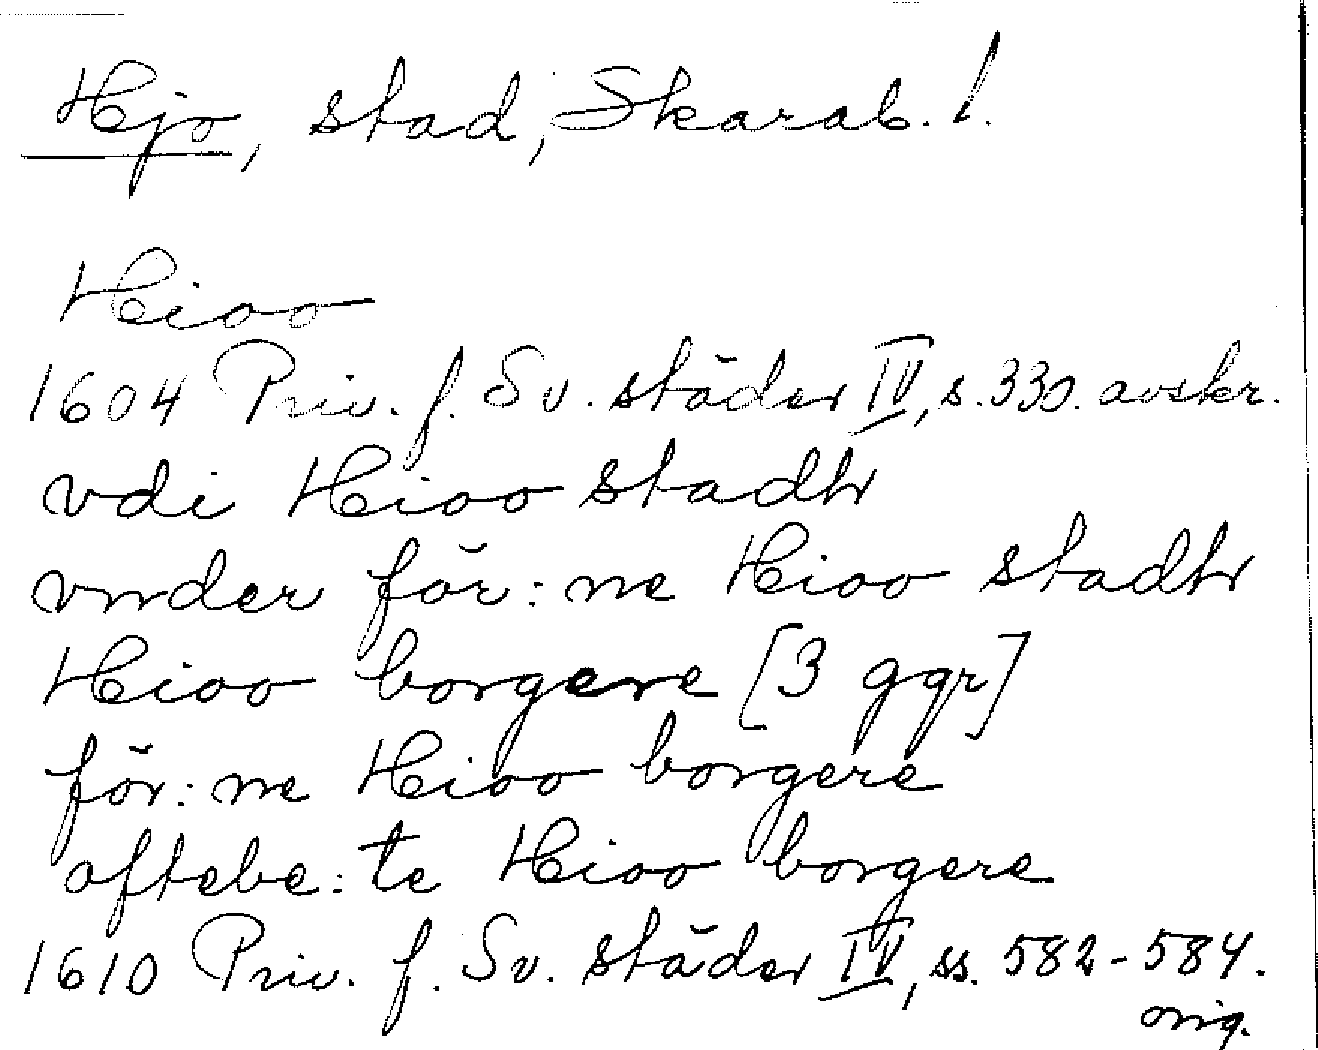 Hjo, stad, Skarab. l.
Hioo
1604 Priv. f. Sv. städer IV, s. 330. avskr.
vdi Hioo stadh
vnder för:ne Hioo stadh
Hioo borgere [3 ggr]
för:ne Hioo borgere
oftebe:te Hioo borgere
1610 Priv. f. Sv. städer IV, ss. 582-584.
orig.